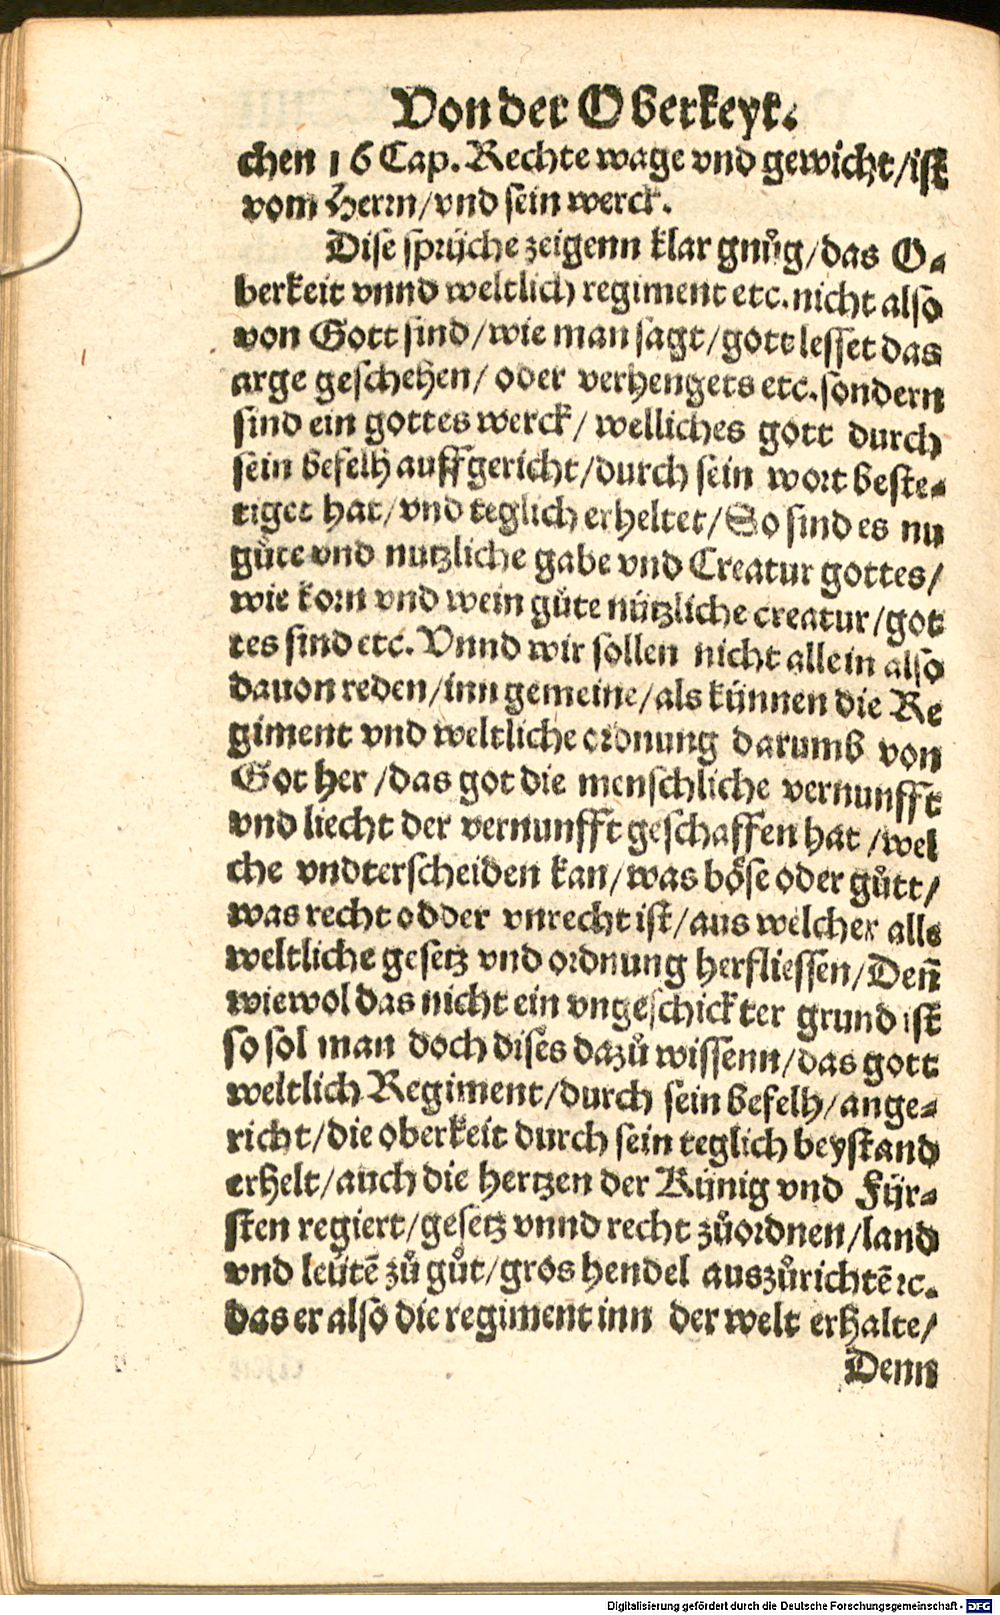 Von der Oberkeyt.
chen 16 Cap. Rechte wage vnd gewicht/ist
vom Herrn/vnd sein werck.
Dise sprüche zeigenn klar gnůg/das O-
berkeit vnnd weltlich regiment etc. nicht also
von Gott sind/wie man sagt/gott lesset das
arge geschehen/ oder verhengets etc. sondern
sind ein gottes werck/ welliches gott durch
sein befelh auffgericht/durch sein wort beste-
tiget hat/vnd teglich erheltet/So sind es nu
gůte vnd nutzliche gabe vnd Creatur gottes/
wie korn vnd wein gůte nützliche creatur/got
tes sind etc. Vnnd wir sollen nicht allein also
dauon reden/inn gemeine/als künnen die Re
giment vnd weltliche ordnung darumb von
Got her /das got die menschliche vernunfft
vnd liecht der vernunfft geschaffen hat /wel
che vndterscheiden kan/was böse oder gůtt/
was recht odder vnrecht ist/aus welcher alle
weltliche gesetz vnd ordnung herfliessen/Deñ
wiewol das nicht ein vngeschickter grund ist
so sol man doch dises dazů wissenn/das gott
weltlich Regiment/durch sein befelh/ange-
richt/die oberkeit durch sein teglich beystand
erhelt/auch die hertzen der Künig vnd Für-
sten regiert/gesetz vnnd recht zůordnen/land
vnd leütē zů gůt/gros hendel auszůrichtē ꝛc.
das er also die regiment inn der welt erhalte/
Denn
Digitalisierung gefördert durch die Deutsche Forschungsgemeinschaft - DFG